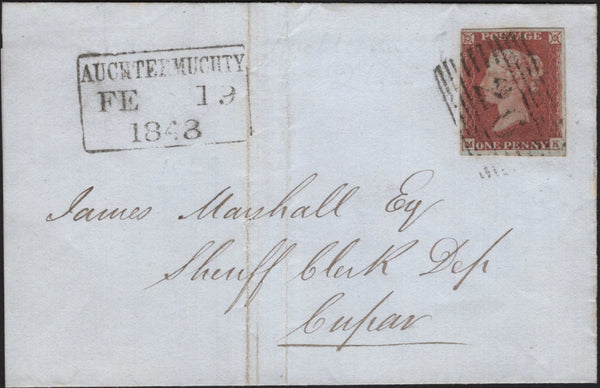 AUCHTERMUCHTY
FE 19
1848
POSTAGE
M ONE PENNY K
James Marshall Esq
Sheriff Clerk Dep
Cupar